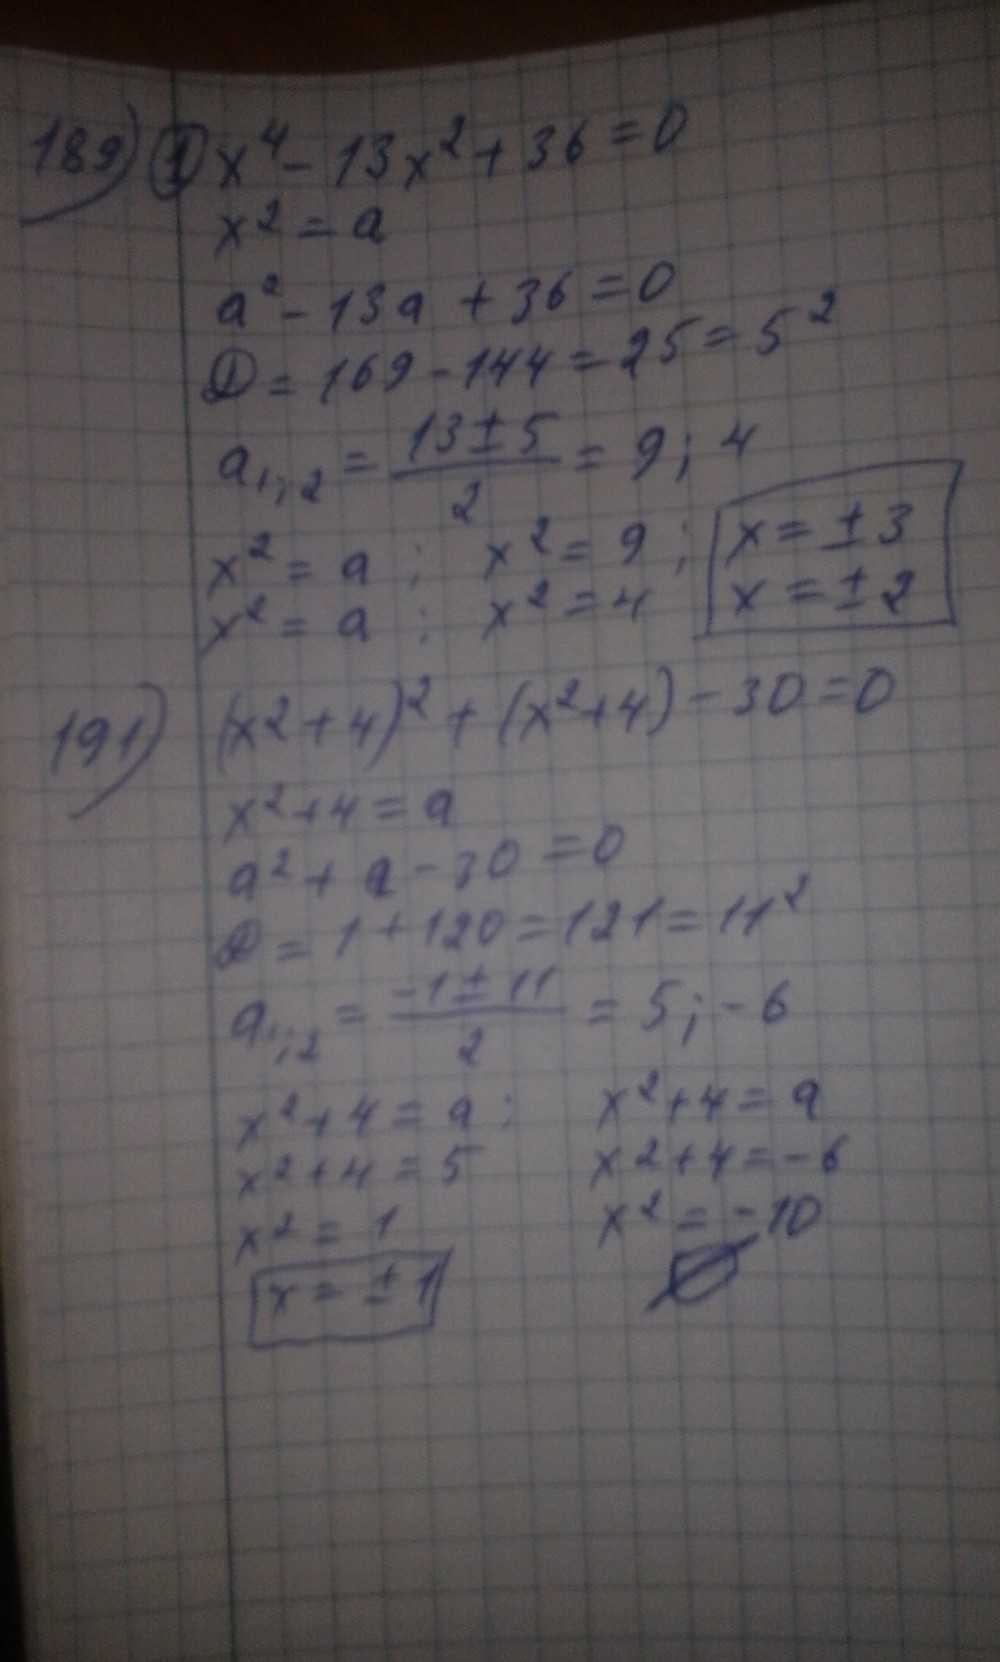 189) ① x⁴ - 13x² + 36 = 0
x² = a
a² - 13a + 36 = 0
D = 169 - 144 = 25 = 5²
a₁,;₂ = (13 ± 5)/2 = 9; 4
x² = a ; x² = 9 ; x = ±3
x² = a ; x² = 4 x = ±2
191) (x² + 4)² + (x² + 4) - 30 = 0
x² + 4 = a
a² + a - 30 = 0
D = 1 + 120 = 121 = 11²
a₁,;₂ = (-1 ± 11)/2 = 5; -6
x² + 4 = a ; x² + 4 = a
x² + 4 = 5 x² + 4 = -6
x² = 1 x² = -10
x = ±1 ∅